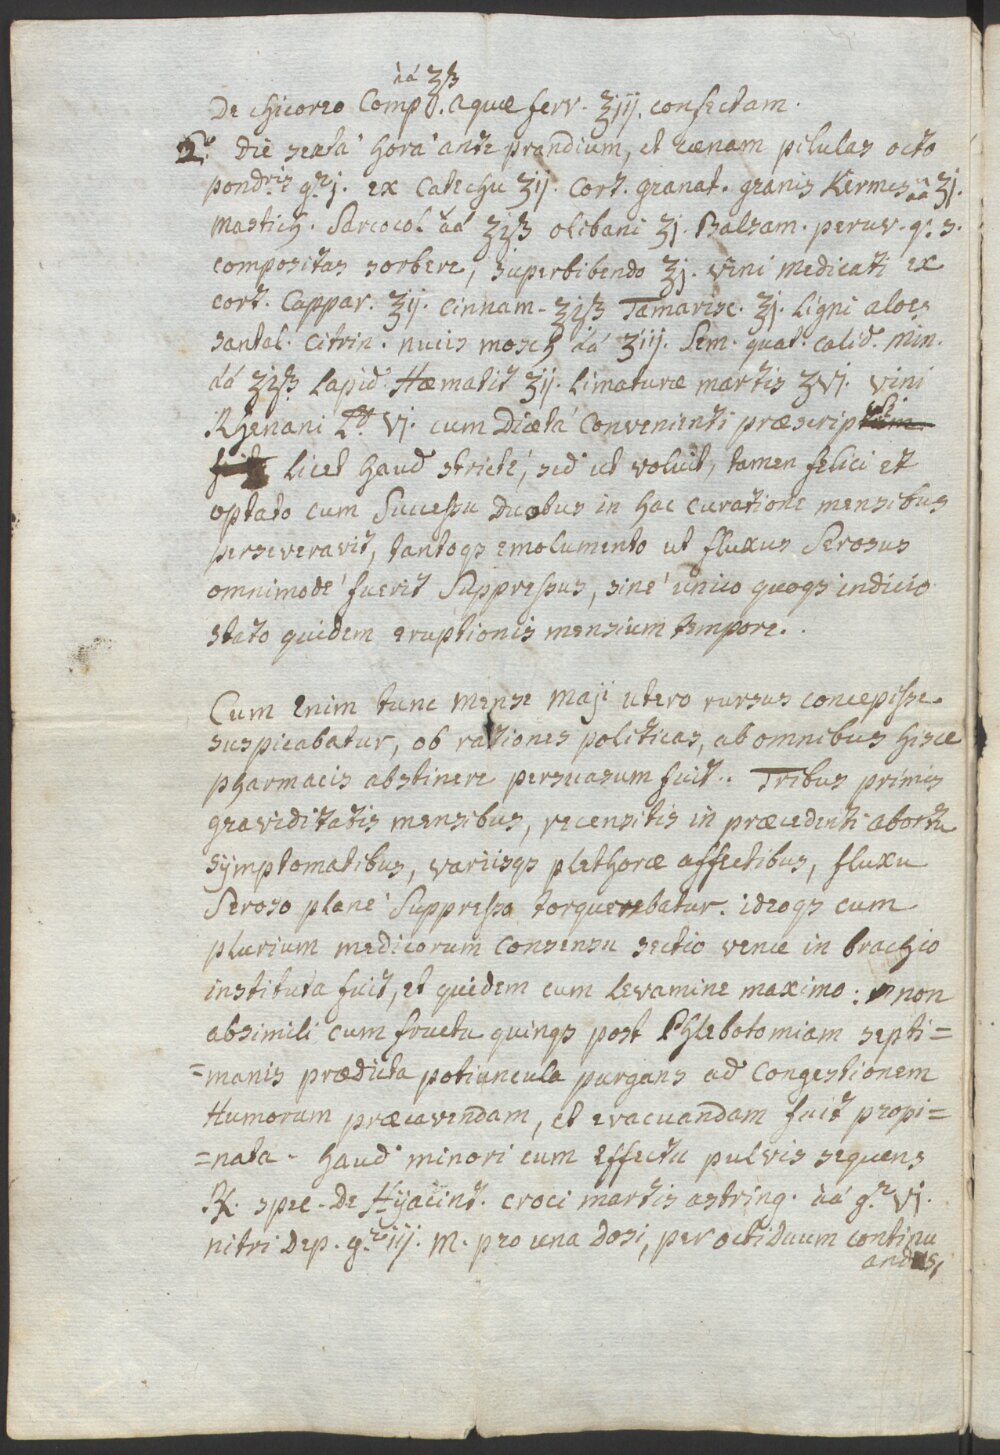 āá ʒß
De chicoreo Comp. aquæ ferv. ℥iij. confectam.
2º. Die sexta hora ante prandium, et cœnam pilulas octo
pondris gr j. ex Catechu ʒij. cort. granat. granis Kermes āā ʒj.
mastich. Sarcocol āá ʒjß olibani ʒj. Balsam. peruv. q. s.
compositas sorbere, superbibendo ℥j. vini medicati ex
cort. Cappar. ℥ij. cinnam. ʒjß Tamarisc. ℥j. Ligni aloes
santal. citrin. nucis mosch āá ʒiij. Sem. quat. calid. min.
āá ʒjß Lapid Hæmatit ʒij. Limaturæ martis ʒvj. vini
Rhenani vj. cum Diætá convenienti præscript
licet haud stricté, sed ut voluit, tamen felici et
optato cum Successu duobus in hac curatione mensibus
perseveravit, tantoqs emolumento ut fluxus Serosus
omnimodé fuerit Suppressus, siné unico quoqs indicio
stato quidem eruptionis mensium tempore.
Cum Enim tunc mense maji utero rursus concepisse
suspicabatur, ob rationes politicas, ab omnibus hisce
pharmacis abstinere persuasum fuit. Tribus primis
graviditatis mensibus, recensitis in præcedenti abortu
symptomatibus, variisqs plethoræ affectibus, fluxu
Seroso plané Suppresso torquebatur. ideoqs cum
plurium medicorum consensu sectio venæ in brachio
instituta fuit, et quidem cum levamine maximo: non
absimili cum fructu quinqs post Phlebotomiam septi=
=manis prædicta potiuncula purgans ad Congestionem
Humorum præcavendam, et evacuandam fuit propi=
=nata. haud minori cum Effectu pulvis sequens
℞. spec. De Hyacint. croci martis astring. āá gr vj.
nitri Dep. gr iij. M. pro una dosi, per octiduum continu
andus,